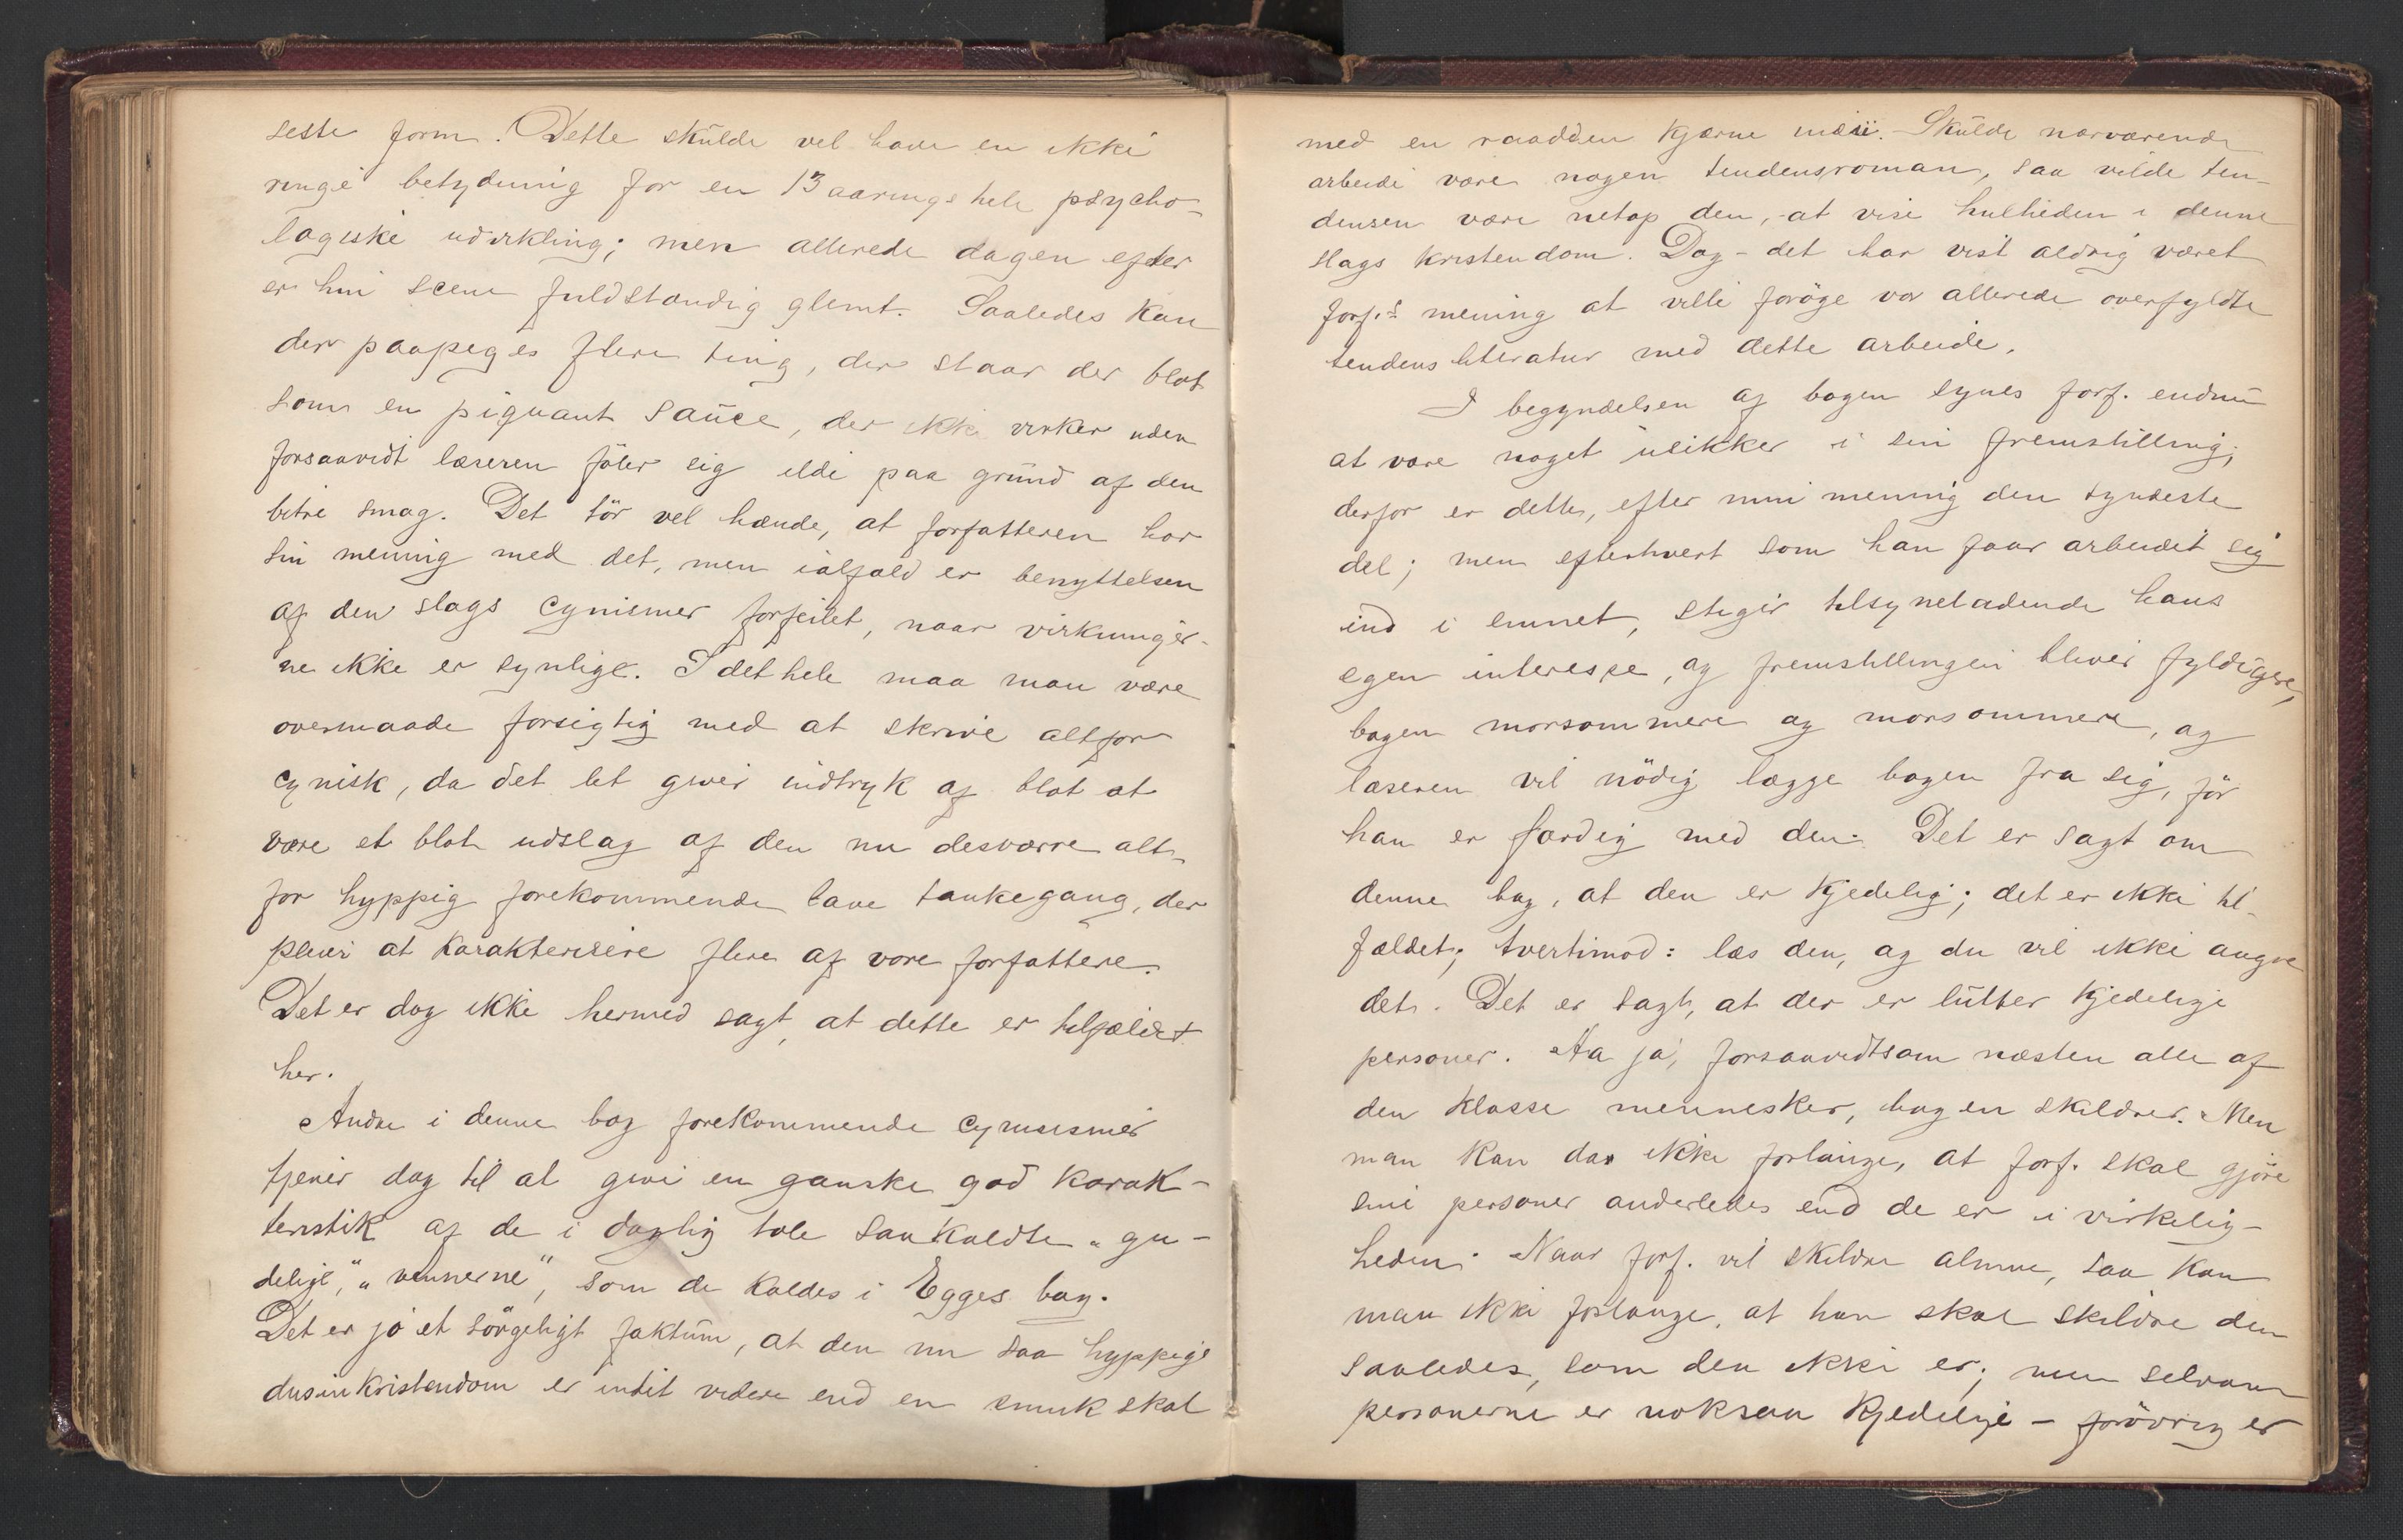 seste form. Dette skulde vel have en ikke
ringe betydning for en 13 aarings hele psycho-
logiske udvikling; men allerede dagen efter
er hin scene fuldstændig glemt. Saaledes kan
der paapeges flere ting, der staar der blot
som en piquant sauce, der ikke virker uden
forsaavidt læseren föler sig ilde paa grund af den
bitre smag. Det tör vel hænde, at forfatteren har
sin mening med det, men ialfald er benyttelsen
af den slags cynismer forfeilet, naar virkninger-
ne ikke er synlige. I det hele maa man være
overmaade forsigtig med at skrive altfor
cynisk, da det let giver indtryk af blot at
være et blot udslag af den nu desværre alt-
for hyppig forekommende lave tankegang, der
pleier at karakterisere flere af vore forfattere.
Det er dog ikke hermed sagt, at dette er tilfældet
her.
Andre i denne bog forekommende cynismer
tjener dog til at give en ganske god karak-
teristik af de i daglig tale saakaldte "gu-
delige," "vennerne", som de kaldes i Egges bog.
Det er jo et sörgeligt faktum, at den nu saa hyppige
dusinkristendom er intet videre end en smuk skal
med en raadden kjærne indeni. - Skulde nærværende
arbeide være nogen tendensroman, saa vilde ten-
densen være netop den, at vise hulheden i denne
slags kristendom. Dog - det har vist aldrig været
forf.s mening at ville foröge vor allerede overfyldte
tendensliteratur med dette arbeide.
I begyndelsen af bogen synes forf. endnu
at være noget usikker i sin fremstilling;
derfor er dette, efter min mening den tyndeste
del; men efterhvert som han faar arbeidet sig
ind i emnet, stiger tilsyneladende hans
egen interesse, og fremstillingen bliver fyldigere,
bogen morsommere og morsommere, og
læseren vil nödig lægge bogen fra sig, för
han er færdig med den. Det er sagt om
denne bog, at den er kjedelig; det er ikke til-
fældet; tvertimod: læs den, og du vil ikke angre
det. Det er sagt, at der er lutter kjedelige
personer. Aa ja, forsaavidtsom næsten alle af
den klasse mennesker, bogen skildrer. Men
man kan da ikke forlange, at forf. skal gjöre
sine personer anderledes end de er i virkelig-
heden. Naar forf. vil skildre almue, saa kan
man ikke forlange, at han skal skildre den
saaledes, som den ikke er; men selvom
personerne er noksaa kjedelige - forövrig er